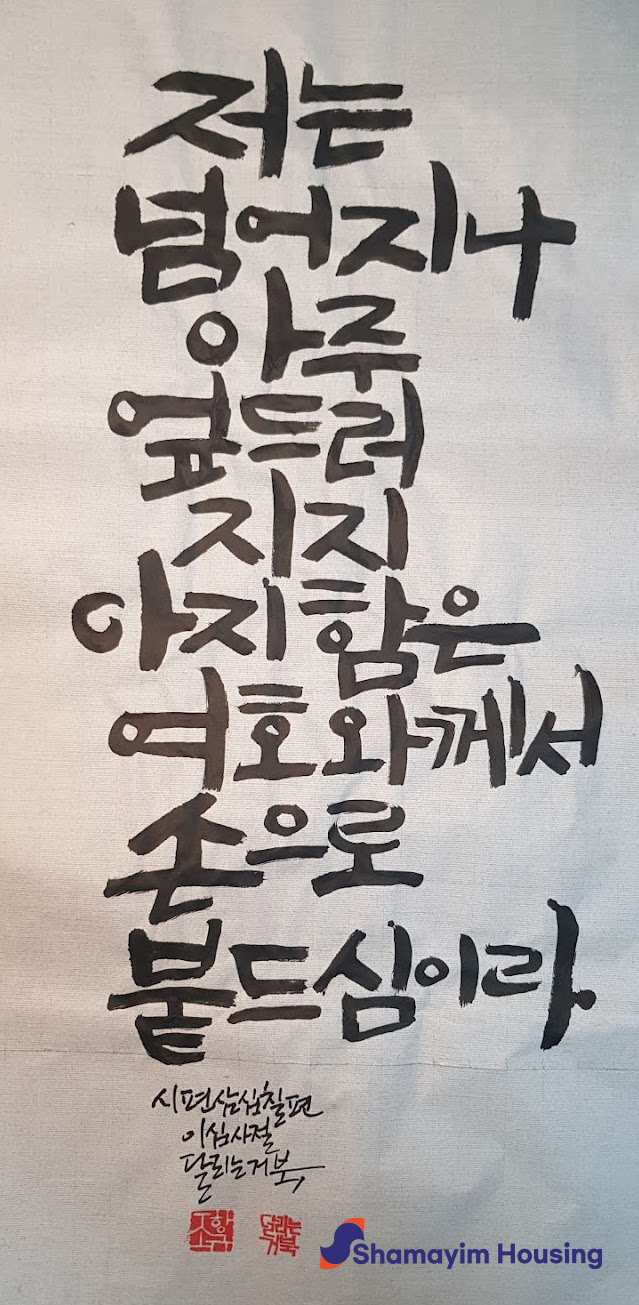 저는
넘어지나
아주
엎드러
지지
아니함은
여호와께서
손으로
붙드심이라.
시편삼십칠편
이십사절
달리는거북
달리는
거북
Shamayim Housing